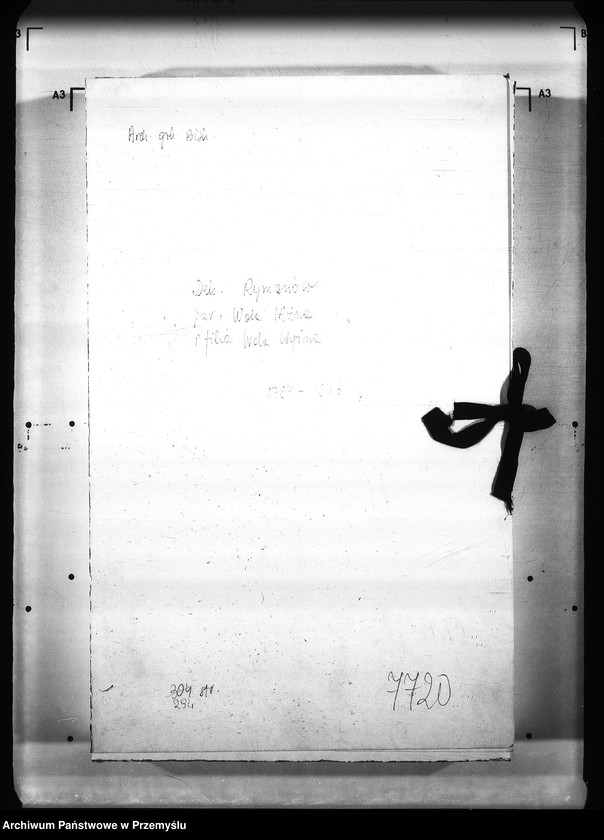 A3
A3
Arch. grb. Bisk.
Dek. Rymanów
par. Wola Niżna
i filia Wola Wyżna
304 str.
294
7720
Archiwum Państwowe w Przemyślu